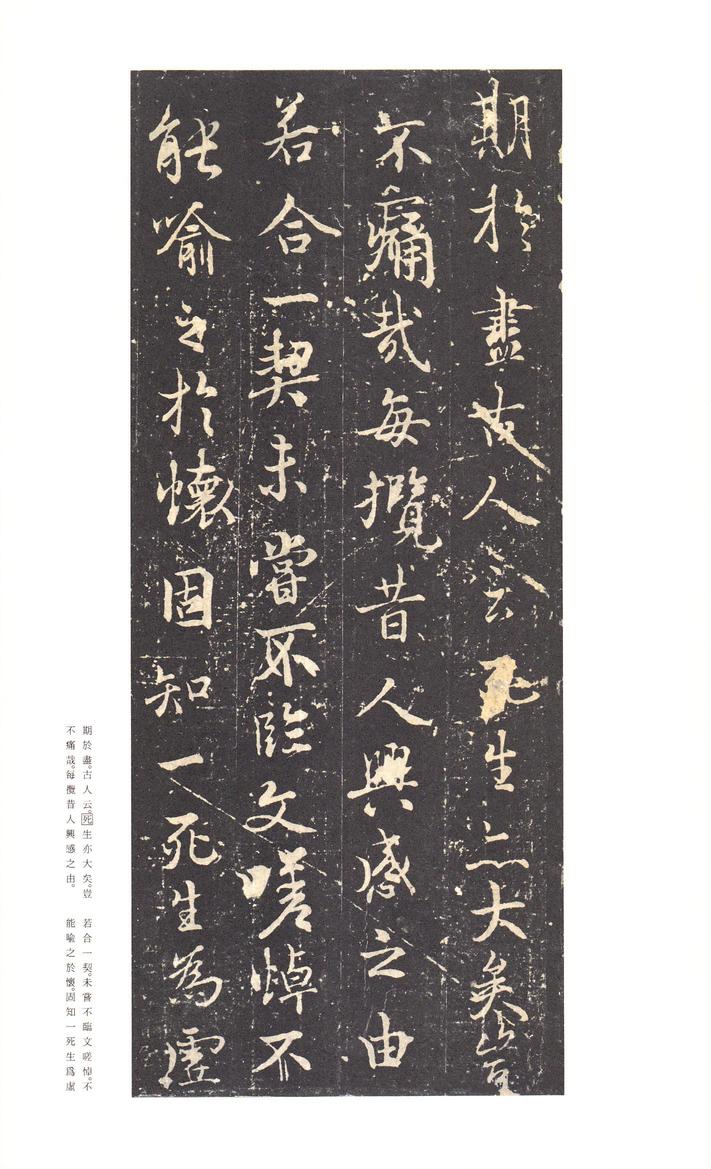 期於盡古人云死生亦大矣豈
不痛哉每攬昔人興感之由
若合一契未嘗不臨文嗟悼不
能喻之於懷固知一死生為虛
期於盡。古人云。死生亦大矣。豈
不痛哉。每攬昔人興感之由。
若合一契。未嘗不臨文嗟悼。不
能喻之於懷。固知一死生爲虛